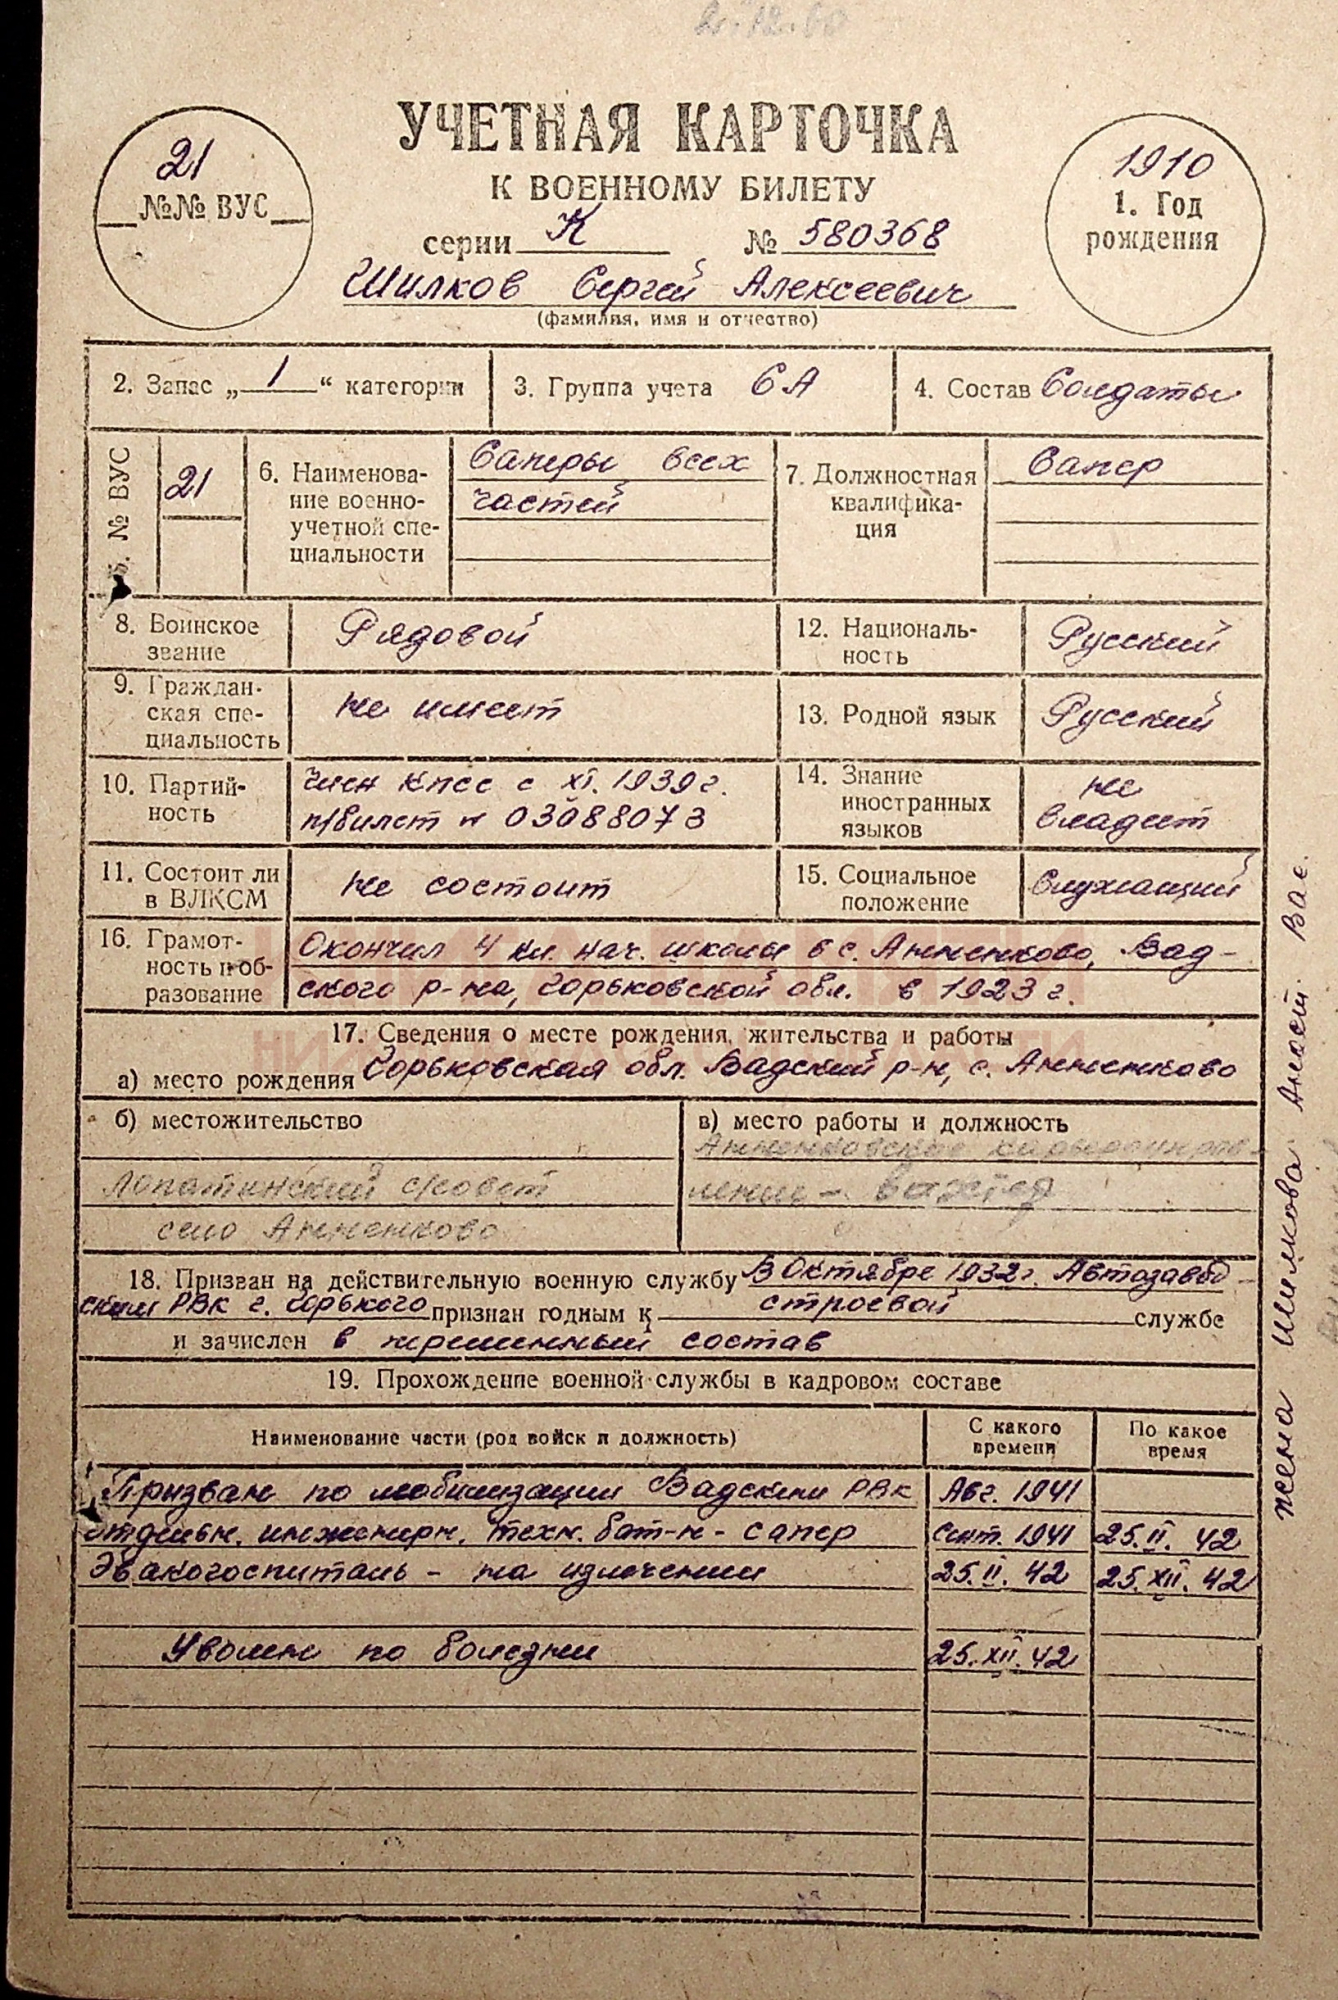 УЧЕТНАЯ КАРТОЧКА
К ВОЕННОМУ БИЛЕТУ
21
№№ ВУС
1910
1. Год
рождения
серии К № 580368
Шилков Сергей Алексеевич
(фамилия, имя и отчество)
2. Запас „1“ категории
3. Группа учета СА
4. Состав Солдаты
5. № ВУС
21
6. Наименова-
ние военно-
учетной спе-
циальности
Саперы всех
частей
7. Должностная
квалифика-
ция
Сапер
8. Воинское
звание
Рядовой
12. Националь-
ность
Русский
9. Граждан-
ская спе-
циальность
не имеет
13. Родной язык
Русский
10. Партий-
ность
Член КПСС с XI. 1939 г.
п/билет № 03088073
14. Знание
иностранных
языков
не
владеет
11. Состоит ли
в ВЛКСМ
не состоит
15. Социальное
положение
Служащий
16. Грамот-
ность и об-
разование
Окончил 4 кл. нач. школы в с. Анненково, Вад-
ского р-на, Горьковской обл. в 1923 г.
17. Сведения о месте рождения, жительства и работы
а) место рождения Горьковская обл. Вадский р-н, с. Анненково
б) местожительство
Лопатинский с/совет
село Анненково
в) место работы и должность
Анненковское карьероуправ-
ление - вахтер
18. Призван на действительную военную службу В Октябре 1932 г. Автозавод-
ским РВК г. Горького признан годным к строевой службе
и зачислен в переменный состав
19. Прохождение военной службы в кадровом составе
Наименование части (род войск и должность)
С какого
времени
По какое
время
Призван по мобилизации Вадским РВК Авг. 1941
отдельн. инженерн. техн. бат-н - сапер Сент. 1941 25. II. 42
Эвакогоспиталь - на излечении 25. II. 42 25. XII. 42
Уволен по болезни 25. XII. 42
жена Шилкова Анаст. Вас.